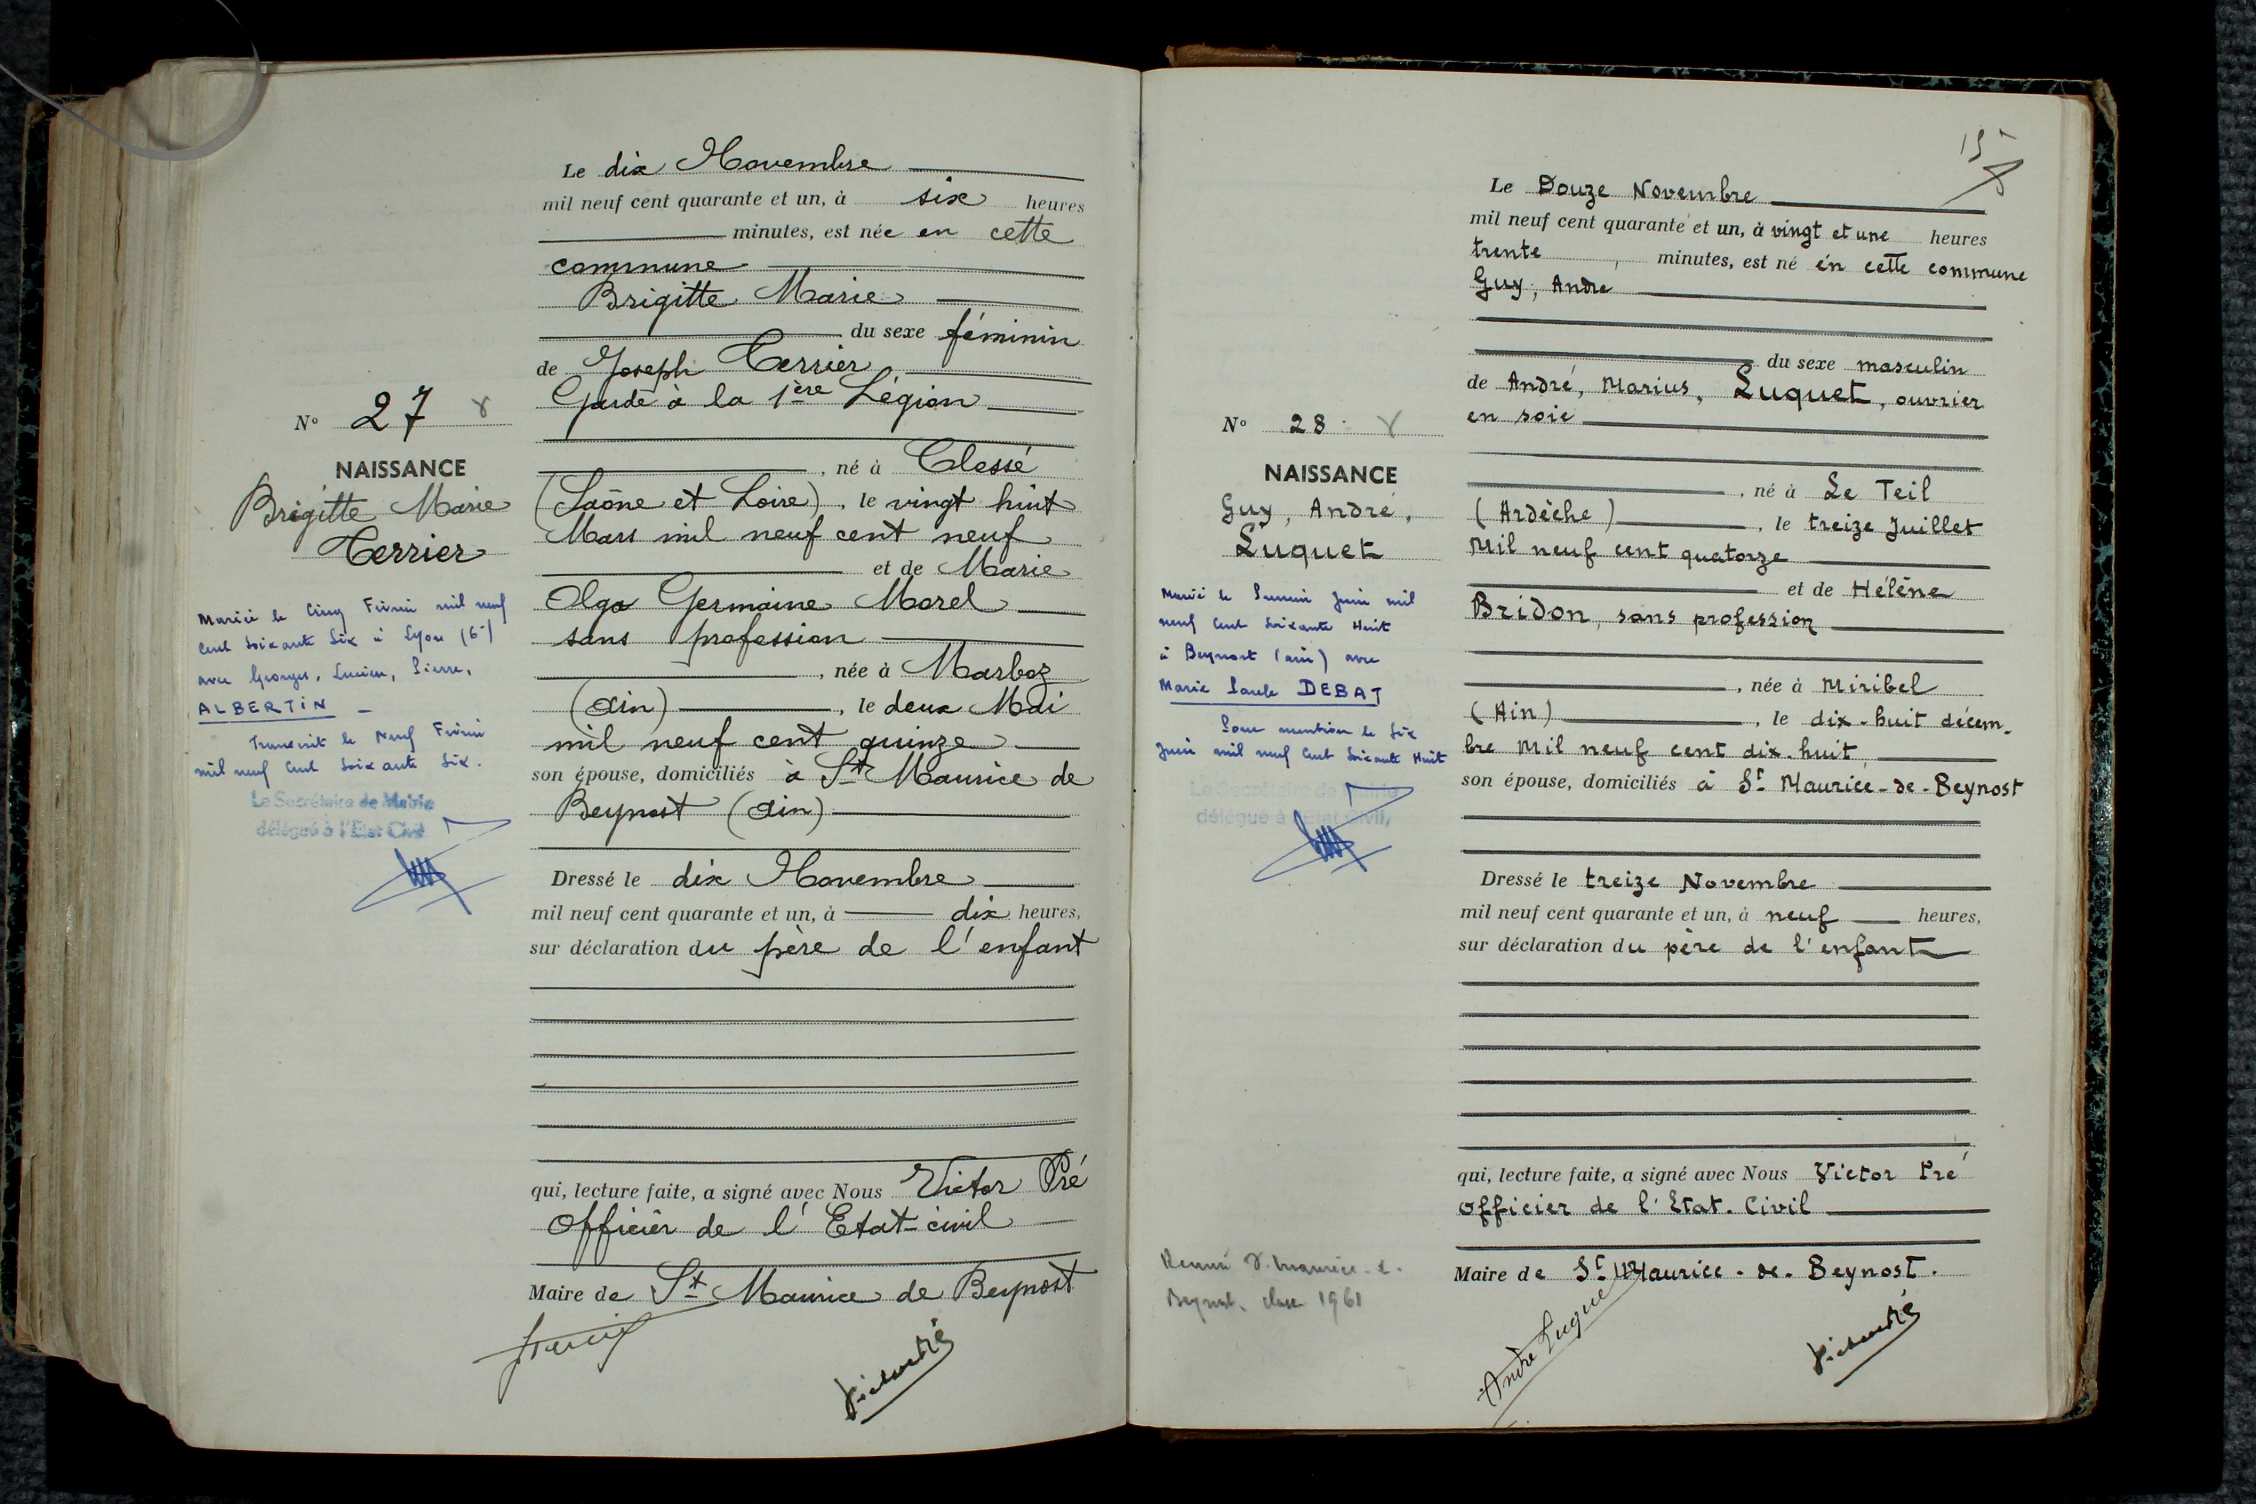 Le dix Novembre
mil neuf cent quarante et un, à six heures
minutes, est née en cette
commune
Brigitte Marie
du sexe féminin
de Joseph Terrier
Garde à la 1ère Légion
N° 27
NAISSANCE
Brigitte Marie
Terrier
, né à Clessé
(Saône et Loire), le vingt huit
Mars mil neuf cent neuf
et de Marie
Olga Germaine Morel
sans profession
, née à Marboz
(Ain), le deux Mai
mil neuf cent quinze
son épouse, domiciliés à St Maurice de
Beynost (Ain)
Marié le Cinq Février mil neuf
cent soixante six à Lyon (6e)
avec Georges, Lucien, Pierre,
ALBERTIN
Transcrit le Neuf Février
mil neuf cent soixante six.
Le Secrétaire de Mairie
délégué à l'Etat Civil
Dressé le dix Novembre
mil neuf cent quarante et un, à dix heures,
sur déclaration du père de l'enfant
qui, lecture faite, a signé avec Nous Victor Pré
Officier de l'Etat-civil
Maire de St Maurice de Beynost
Victor Pré
15
Le Douze Novembre
mil neuf cent quarante et un, à vingt et une heures
trente, minutes, est né en cette commune
Guy, André
du sexe masculin
de André, Marius, Luquet, ouvrier
en soie
N° 28
NAISSANCE
Guy, André,
Luquet
, né à Le Teil
(Ardèche), le treize Juillet
Mil neuf cent quatorze
et de Hélène
Bridon, sans profession
, née à Miribel
(Ain), le dix-huit décem-
bre Mil neuf cent dix-huit
son épouse, domiciliés à St Maurice-de-Beynost
Marié le Premier Juin mil
neuf cent soixante Huit
à Beynost (ain) avec
Marie Paule DEBAT
Pour mention le Six
Juin mil neuf cent soixante Huit
Le Secrétaire de Mairie
délégué à l'Etat Civil,
Dressé le treize Novembre
mil neuf cent quarante et un, à neuf heures,
sur déclaration du père de l'enfant
qui, lecture faite, a signé avec Nous Victor Pré
Officier de l'Etat-Civil
Maire de St Maurice-de-Beynost.
St Maurice-d-
Beynost. classe 1961
André Luquet
Victor Pré